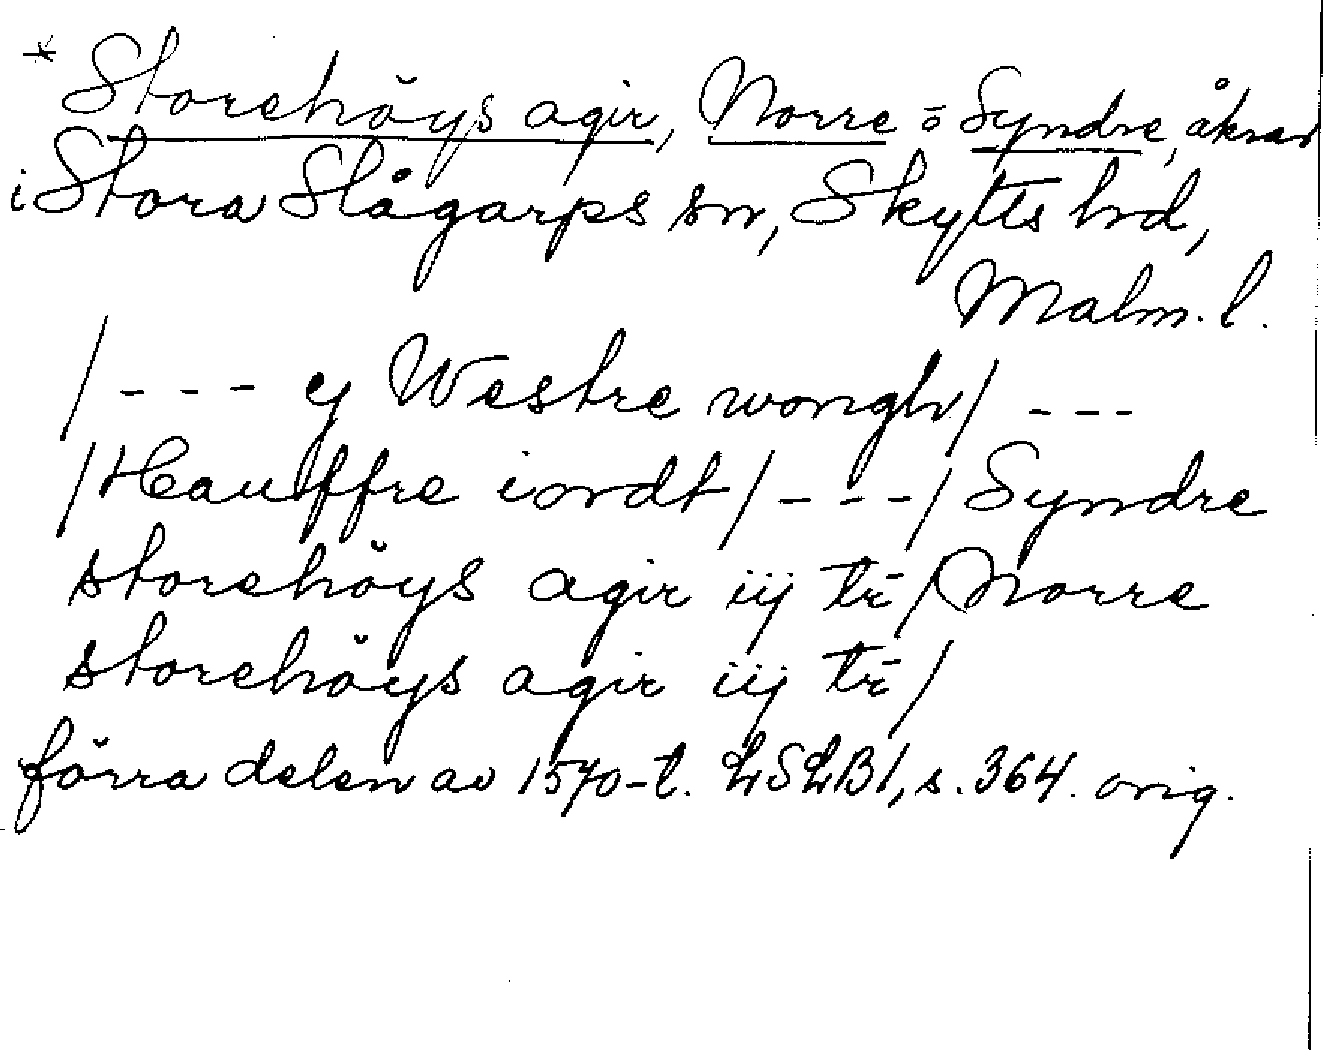 * Storehöys agir, Norre o Syndre, åkrar
i Stora Slågarps sn, Skytts hd,
Malm. l.
/--- ej Westre wongh/ ---
/Hauffre iordt/---/Syndre
storehöys agir iij tr̄/Norre
storehöys agir iij tr̄/
förra delen av 1570-t. LSLB1, s. 364. orig.